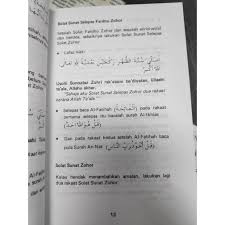 Solat Sunat Selepas Fardhu Zohor
Setelah Solat Fardhu Zohor dan selesai berwirid
dan berdoa, sebaiknya lakukan Solat Sunat Selepas
Zohor.
• Lafaz niat:
Usolli Sunnataz Zohri rak'ataini ba'diyatan, lillaahi
ta'ala, Allahu akbar.
"Sahaja aku Solat Sunat Selepas Zohor dua rakaat
kerana Allah Ta'ala."
• Selepas baca Al-Fatihah (الْفَاتِحَةُ) pada rakaat
pertama selepas itu bacalah surah Al-Ikhlas
(قُلْ هُوَ اللَّهُ)
• Dan pada rakaat kedua setelah Al-Fatihah baca
pula Surah An-Nas (قُلْ أَعُوذُ بِرَبِّ النَّاسِ)
Solat Sunat Zohor
Kalau hendak menambahkan amalan, lakukan lagi
dua rakaat Solat Sunat Zohor.